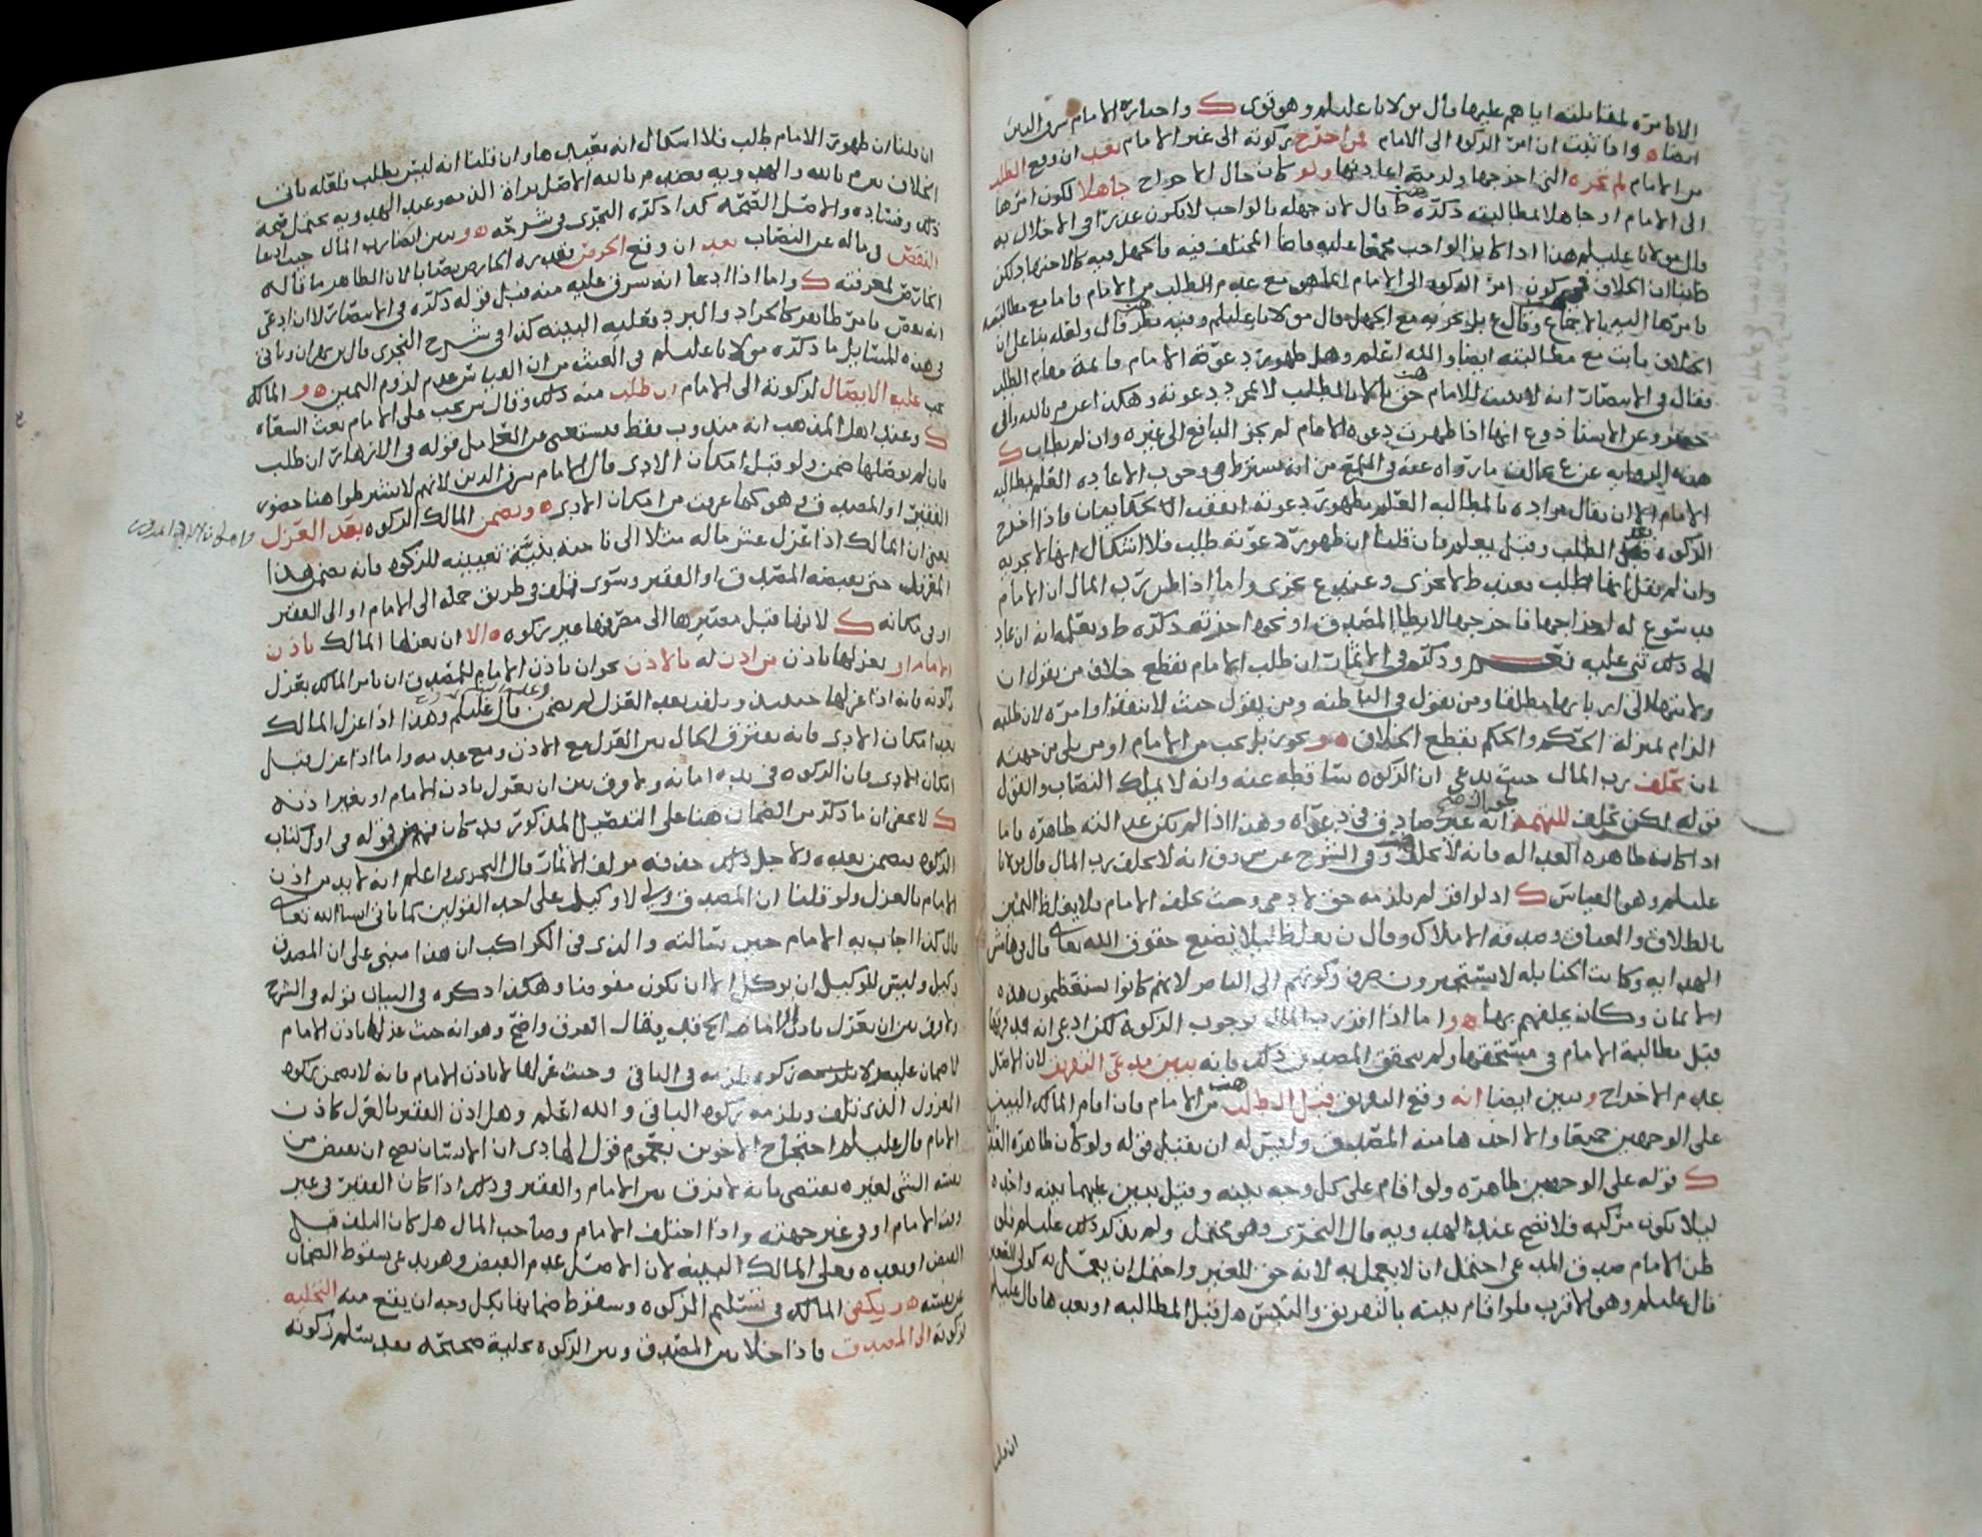 الامامية لمقابلته اياهم عليها قال مولانا عليلم وهو قوي ك واختاره الامام شرف الدين
ايضا ه واذا ثبت ان امر الزكوة الى الامام فمن اخرج زكوته الى غير الامام بعد ان وقع الطلب
من الامام لم تجزه التي اخرجها ولزمته اعادتها ولو كان حال الاخراج جاهلا لكون امرها
الى الامام او جاهلا لمطالبته ذكره ط قال لان جهله بالواجب لا يكون عذرا في الاخلال به
قال مولانا عليلم هذا اذا كان الواجب مجمعا عليه فاما المختلف فيه فالجهل فيه كالاجتهاد لكن
ظاهر الخلاف في كون امر الزكوة الى الامام انما هو مع عدم الطلب من الامام فاما مع مطالبته
فامرها اليه بالاجماع وقال ع بل تجزيه مع الجهل قال مولانا عليلم وفيه نظر قال ولعله بنا على ان
الخلاف ثابت مع مطالبته ايضا والله اعلم وهل ظهور دعوة الامام قائمة مقام الطلب
فقال في الانتصار انه لا يثبت للامام حق الا بالمطلب لا بمجرد دعوته وهكذا عن م بالله وابي
جعفر وعن الاستاذ وع انها اذا ظهرت دعوة الامام لم يجز الدفع الى غيره وان لم يطالب ك
هذه الرواية عن ع تخالف ما رواه عنه في اللمع من انه يشترط في وجوب الاعادة العلم بمطالبة
الامام الا ان يقال مراده بالمطالبة العلم بظهور دعوته اتفقت الحكايتان فاذا اخرج
الزكوة قبل الطلب وقبل يعلم فان قلنا ان ظهور دعوته طلب فلا اشكال انها لا تجزيه
وان لم يقل انها طلب فعند ط لا تجزي وعند ع تجزي واما اذا ظن رب المال ان الامام
قد سوغ له اخراجها فاخرجها لابطا المصدق او نحوه اجزته ذكره ط وبعله انه ان عاد
له ذلك ثنى عليه وذكر في الاثمار ان طلب الامام يقطع خلاف من يقول ان
ولايتها الى اربابها مطلقا ومن يقول في الباطنه ومن يقول حيث لا تنفذ اوامره لان طلبه
الزام بمنزلة الحكم والحكم يقطع الخلاف ه و يجوز بل يجب من الامام او من يلي من جهته
ان يحلف رب المال حيث يدعي ان الزكوة ساقطة عنه وانه لا يملك النصاب والقول
قوله لكن يحلف للتهمة انه غير صادق في دعواه وهذا اذا لم يكن عدالته ظاهره فاما
اذا كانت ظاهره العدالة فانه لا يحلف وفي الشرح عن ص وق انه لا يحلف رب المال قال مولانا
عليلم وهو القياس ك اذ لو اقر لم يلزمه حق لآدمي وحيث يحلف الامام فلا يغلظ اليمين
بالطلاق والعتاق وصدقة الاملاك وقال ن يغلظ لئلا يضيع حقوق الله تعالى قال في هامش
الهدايه وكانت الحنابله لا يستجيزون صرف زكوتهم الى الناصر لانهم كانوا يستعظمون هذه
الايمان وكان يحلفهم بها ه و اما اذا اقر رب المال بوجوب الزكوة لكن ادعى انه قد فرقها
قبل مطالبة الامام في مستحقها ولم يتحقق المصدق ذلك فانه يبين مدعي التفريق لان الاصل
عدم الاخراج ويبين ايضا انه وقع التفريق قبل الطلب من الامام فان اقام المالك البينة
على الوجهين جميعا والا اخذها منه المصدق وليس له ان يقبل قوله ولو كان ظاهره العدالة
ك قوله على الوجهين ظاهره ولو اقام على كل وجه بينه وقيل يبين عليهما بينه واحده
ليلا يكون مركبه فلا تصح عند الهدويه قال النجري وهو محتمل ولم يذكر ذلك عليلم فان
ظن الامام صدق المدعي احتمل ان لا يعمل به لانه حق للغير واحتمل ان يعمل به كولي الصغير
قال عليلم وهو الاقرب فلو اقام بينته بالتفريق والتبس هل قبل المطالبة او بعدها قال عليلم
ان قلنا
ان قلنا ان ظهور الامام طلب فلا اشكال انه يعيدها وان قلنا انه ليس بطلب فلعله ياتي
الخلاف بين م بالله والهدويه فعند م بالله الاصل براة الذمه وعند الهدويه يحتمل صحة
ذلك وفساده والاصل الصحه كذا ذكره النجري في شرحه ه و يبين ايضا رب المال حيث ادعا
النقص في ماله عن النصاب بعد ان وقع الخرص بعدده الخارص نصابا لان الظاهر ما قاله
الخارص لمعرفته ك واما اذا ادعا انه سرق عليه منه قبل قوله ذكره في الانتصار الا ان ادعى
انه نقص بامر ظاهر كالجراد والبرد فعليه البينه كذا في شرح النجري قال بن بهران وياتي
في هذه المسائل ما ذكره مولانا عليلم في الغيث من ان القياس عدم لزوم اليمين ه و المالك
يجب عليه الايصال لزكوته الى الامام ان طلب منه ذلك وقال ش يجب على الامام بعث السعاه
ك وعند اهل المذهب انه مندوب فقط فيستغنى عن التعامل قوله في الازهار ان طلب
فان لم يوصلها ضمن ولو قبل امكان الادى قال الامام شرف الدين لانهم لا يشترطوا هنا حضور
الفقير او المصدق وهو كما عرفت من امكان الادى ه ويضمن المالك الزكوة بعد العزل
يعني ان المالك اذا عزل عشر ماله مثلا الى ناحية بنية تعيينه للزكوة فانه يضمن هذا
المعزول حتى يقبضه المصدق او الفقير وسوى تلف في طريق حمله الى الامام او الى الفقير
او في مكانه ك لانها قبل مصيرها الى مصرفها غير زكوة ه الا ان يعزلها المالك باذن
الامام او يعزلها باذن من اذن له بالاذن نحو ان ياذن الامام للمصدق ان يامر المالك بعزل
زكوته فانه اذا عزلها حينئذ وتلفت بعد العزل لم يضمن قال عليلم وهذا اذا عزل المالك
بعد امكان الادى فانه يفترق الحال بين العزل مع الاذن ومع عدمه واما اذا عزل قبل
امكان الادى فان الزكوة في يده امانه ولا فرق بين ان يعزل باذن الامام او بغير اذنه
ك لا يخفى ان ما ذكر من الضمان هنا على التفصيل المذكور قد كان فهم من قوله في اول كتاب
الزكوة فيضمن بعده ولاجل ذلك حذفه مولف الاثمار قال النجري واعلم انه لا بد من اذن
الامام بالعزل ولو قلنا ان المصدق ولي لا وكيل على احد القولين كما ياتي ان شا الله تعالى
قال كذا اجاب به الامام حين سالته والذي في الكواكب ان هذا مبني على ان المصدق
وكيل وليس للوكيل ان يوكل الا ان يكون مفوضا وهكذا ذكره في البيان قوله في الشرح
ولا فرق بين ان يعزل باذن الامام الخ قد يقال الفرق واضح وهو انه حيث عزلها باذن الامام
لا ضمان عليه زكوة في الباقي وحيث عزلها لا باذن الامام فانه لا يضمن زكوة
المعزول الذي تلف ويلزمه زكوة الباقي والله اعلم وهل اذن الفقير بالعزل كاذن
الامام قال عليلم احتجاج الاخوين بعموم قول الهادي ان الانسان يصح ان يقبض من
نفسه الشي لغيره يقتضي بانه لا فرق بين الامام والفقير وذلك اذا كان الفقير في غير
وقت الامام او في غير جهته واذا اختلف الامام وصاحب المال هل كان التلف قبل
القبض او بعده فعلى المالك البينه لان الاصل عدم القبض وهو يدعي سقوط الضمان
عن نفسه ه و يكفي المالك في تسليم الزكوة وسقوط ضمانها بكل وجه ان يقع منه التخليه
لزكوته الى المصدق فاذا خلا بين المصدق وبين الزكوة تخلية صحيحه فقد سلم زكوته